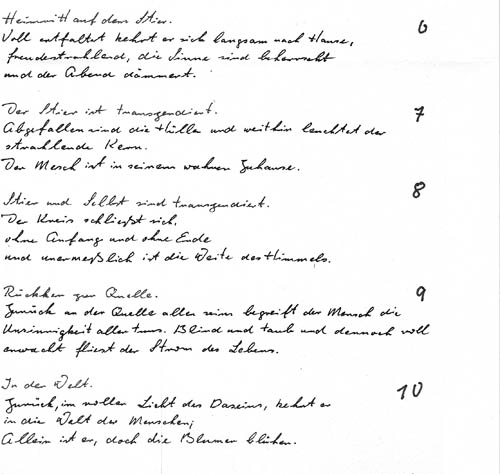 Heimritt auf dem Stier. 6
Voll entfaltet kehrt er sich langsam nach Hause,
freudestrahlend, die Sinne sind beherrscht
und der Abend dämmert.
Der Stier ist transzendiert. 7
Abgefallen sind die Hülle und weithin leuchtet der
strahlende Kern.
Der Mesch ist in seinem wahren Zuhause.
Stier und Selbst sind transzendiert. 8
Der Kreis schließt sich,
ohne Anfang und ohne Ende
und unermeßlich ist die Weite des Himmels.
Rückkehr zur Quelle. 9
Zurück an der Quelle allen seins begreift der Mensch die
Unsinnigkeit allen tuns. Blind und taub und dennoch voll
erwacht fliest der Strom des Lebens.
In der Welt. 10
Zurück, im vollen Licht des Daseins, kehrt er
in die Welt der Menschen;
Allein ist er, doch die Blumen blühen.